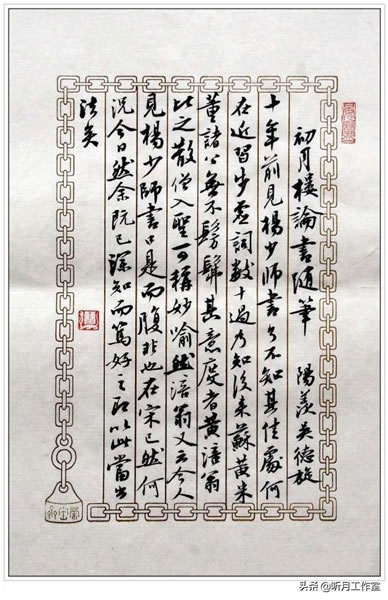 初月樓論書隨筆　陽羨吳德旋
十年前見楊少師書了不知其佳處何
在近習步虛詞數十過乃知後来蘇黃米
董諸公無不髣髴其意度者黃涪翁
比之散僧入聖可稱妙喻然涪翁又云今人
見楊少師書口是而腹非也在宋已然何
况今日然余既已深知而篤好之即以此當出
法矣
头条 @听月工作室